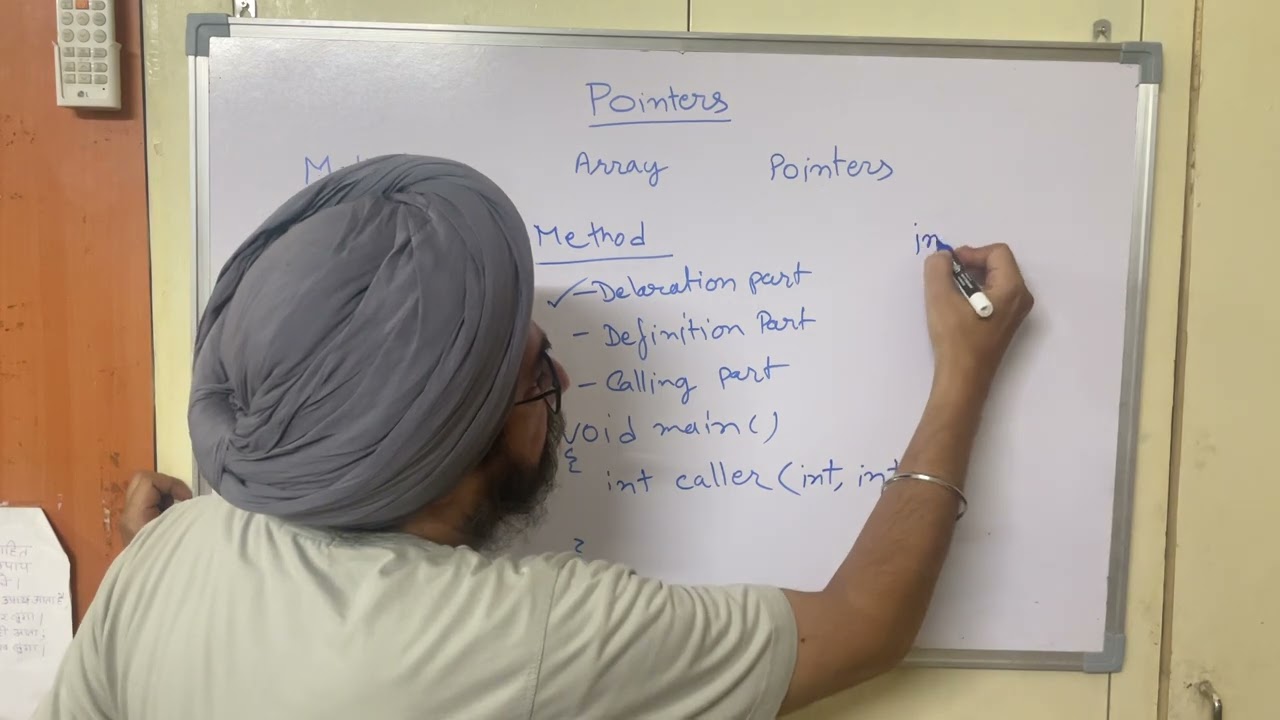 Pointers
Array Pointers
Method
in
- Delaration part
- Definition Part
- Calling part
void main()
{
int caller (int, int
}